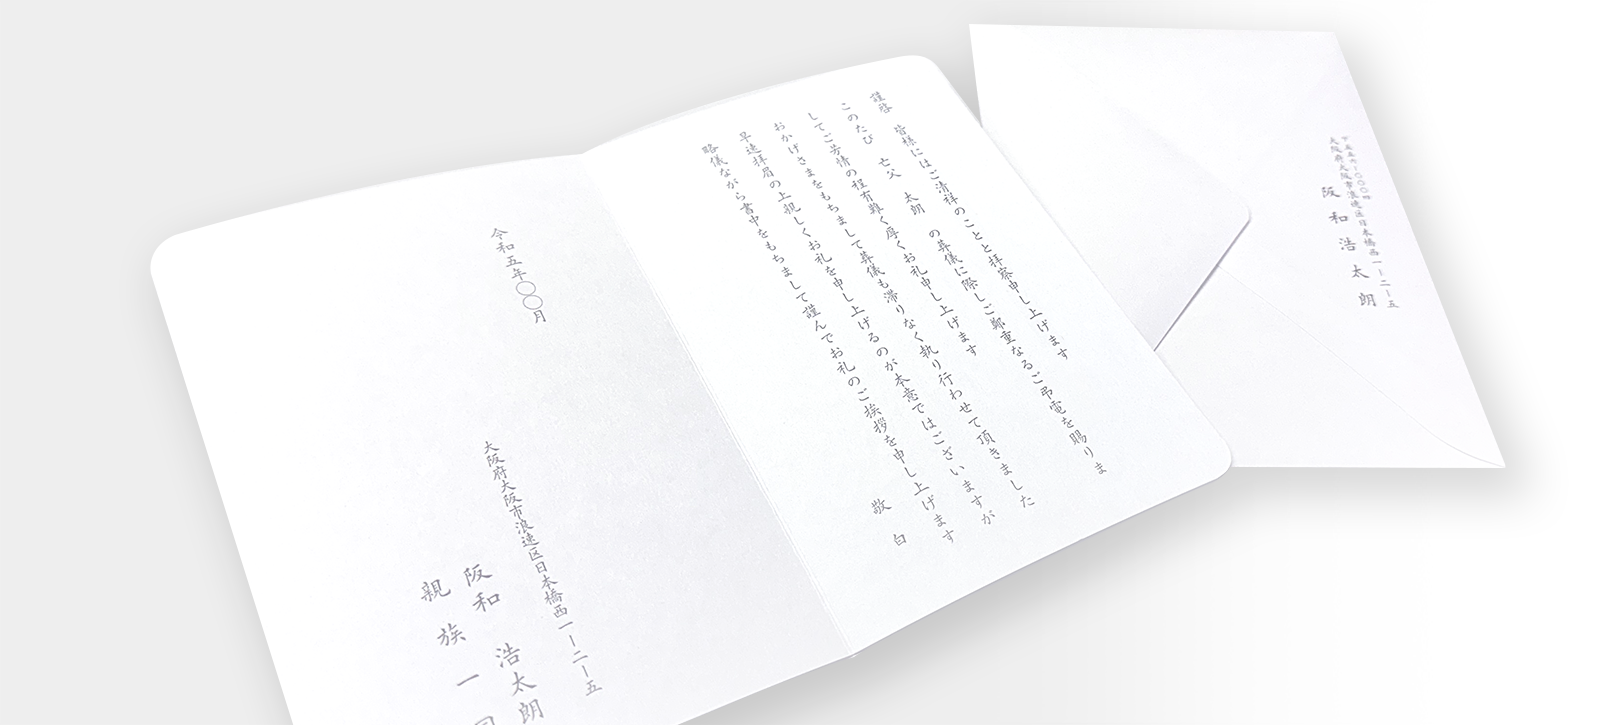 謹啓　皆様にはご清祥のことと拝察申し上げます
このたび　亡父　太朗　の葬儀に際しご鄭重なるご弔電を賜りま
してご芳情の程有難く厚くお礼申し上げます
おかげさまをもちまして葬儀も滞りなく執り行わせて頂きました
早速拝眉の上親しくお礼を申し上げるのが本意ではございますが
略儀ながら書中をもちまして謹んでお礼のご挨拶を申し上げます
敬　白
令和五年〇〇月
大阪府大阪市浪速区日本橋西一ー二ー五
阪和　浩太朗
親族一同
〒五五六ー〇〇〇四
大阪府大阪市浪速区日本橋西一ー二ー五
阪和浩太朗